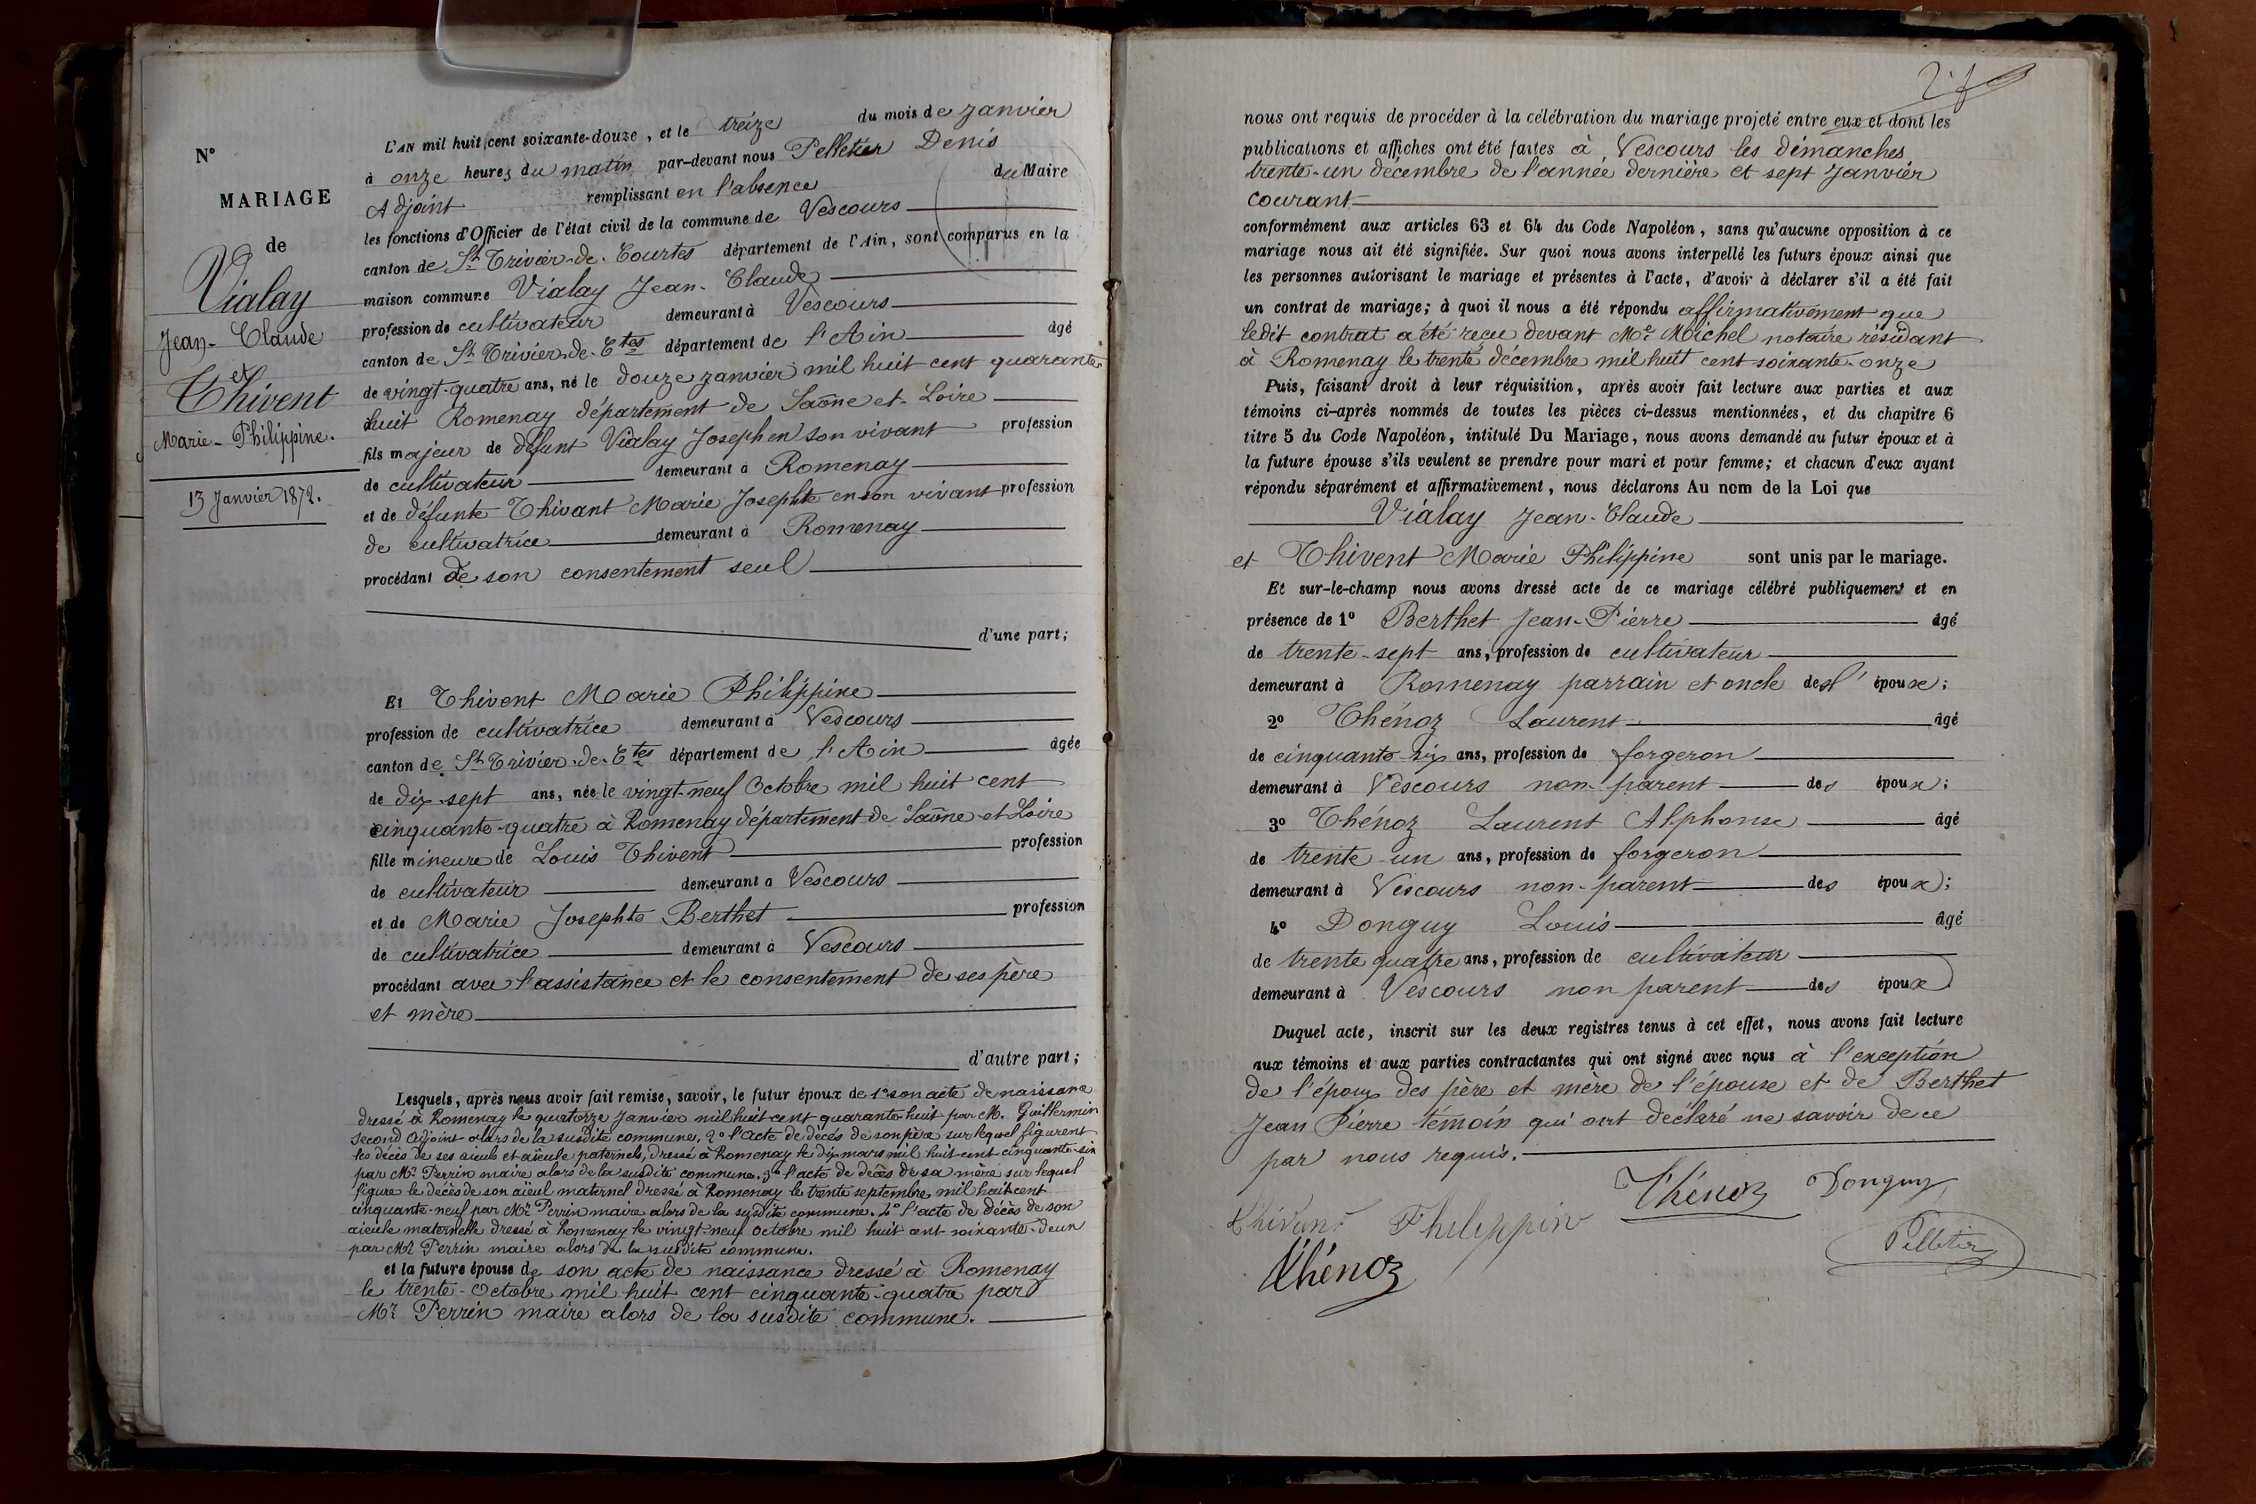 N°
MARIAGE
de
Vialay
Jean-Claude
et
Thivent
Marie-Philippine.
13 Janvier 1872.
L'AN mil huit cent soixante-douze, et le treize du mois de Janvier
à onze heures du matin par-devant nous Pelletier Denis
Adjoint remplissant en l'absence du Maire
les fonctions d'Officier de l'état civil de la commune de Vescours
canton de St Trivier-de-Courtes département de l'Ain, sont comparus en la
maison commune Vialay Jean-Claude
profession de cultivateur demeurant à Vescours
canton de St Trivier-de-Ctes département de l'Ain âgé
de vingt-quatre ans, né le douze janvier mil huit cent quarante
huit Romenay département de Saône-et-Loire
fils majeur de défunt Vialay Joseph en son vivant profession
de cultivateur demeurant à Romenay
et de défunte Thivant Marie Josephte en son vivant profession
de cultivatrice demeurant à Romenay
procédant de son consentement seul
d'une part;
Et Thivent Marie Philippine
profession de cultivatrice demeurant à Vescours
canton de St Trivier-de-Ctes département de l'Ain âgée
de dix-sept ans, née le vingt-neuf Octobre mil huit cent
cinquante-quatre à Romenay département de Saône-et-Loire
fille mineure de Louis Thivent profession
de cultivateur demeurant à Vescours
et de Marie Josephte Berthet profession
de cultivatrice demeurant à Vescours
procédant avec l'assistance et le consentement de ses père
et mère
d'autre part;
Lesquels, après nous avoir fait remise, savoir, le futur époux de 1° son acte de naissance
dressé à Romenay le quatorze Janvier mil huit cent quarante-huit par M. Guillermin
second adjoint alors de la susdite commune, 2° l'acte de décès de son père sur lequel figurent
les décès de ses aïeuls et aïeule paternels, dressé à Romenay le dix mars mil huit-cent cinquante-six
par Mr Perrin maire alors de la susdite commune. 3° l'acte de décès de sa mère sur lequel
figure le décès de son aïeul maternel dressé à Romenay le trente septembre mil huit cent
cinquante-neuf par Mr Perrin maire alors de la susdite commune. 4° l'acte de décès de son
aïeule maternelle dressé à Romenay le vingt-neuf octobre mil huit cent soixante-deux
par Mr Perrin maire alors de la susdite commune.
et la future épouse de son acte de naissance dressé à Romenay
le trente-Octobre mil huit cent cinquante-quatre par
Mr Perrin maire alors de la susdite commune.
nous ont requis de procéder à la célébration du mariage projeté entre eux et dont les
publications et affiches ont été faites à Vescours les dimanches
trente-un décembre de l'année dernière et sept Janvier
courant
conformément aux articles 63 et 64 du Code Napoléon, sans qu'aucune opposition à ce
mariage nous ait été signifiée. Sur quoi nous avons interpellé les futurs époux ainsi que
les personnes autorisant le mariage et présentes à l'acte, d'avoir à déclarer s'il a été fait
un contrat de mariage; à quoi il nous a été répondu affirmativement que
ledit contrat a été reçu devant Me Michel notaire résidant
à Romenay le trente décembre mil huit cent soixante-onze
Puis, faisant droit à leur réquisition, après avoir fait lecture aux parties et aux
témoins ci-après nommés de toutes les pièces ci-dessus mentionnées, et du chapitre 6
titre 5 du Code Napoléon, intitulé Du Mariage, nous avons demandé au futur époux et à
la future épouse s'ils veulent se prendre pour mari et pour femme; et chacun d'eux ayant
répondu séparément et affirmativement, nous déclarons Au nom de la Loi que
Vialay Jean-Claude
et Thivent Marie Philippine sont unis par le mariage.
Et sur-le-champ nous avons dressé acte de ce mariage célébré publiquement et en
présence de 1° Berthet Jean-Pierre âgé
de trente-sept ans, profession de cultivateur
demeurant à Romenay parrain et oncle de l'épouse;
2° Thénoz Laurent âgé
de cinquante-six ans, profession de forgeron
demeurant à Vescours non-parent des époux;
3° Thénoz Laurent Alphonse âgé
de trente-un ans, profession de forgeron
demeurant à Vescours non-parent des époux;
4° Donguy Louis âgé
de trente quatre ans, profession de cultivateur
demeurant à Vescours non parent des époux
Duquel acte, inscrit sur les deux registres tenus à cet effet, nous avons fait lecture
aux témoins et aux parties contractantes qui ont signé avec nous à l'exception
de l'époux des père et mère de l'épouse et de Berthet
Jean Pierre témoin qui ont déclaré ne savoir de ce
par nous requis.
Thénoz Donguy
Thivant Philippine
Pelletier
Thénoz